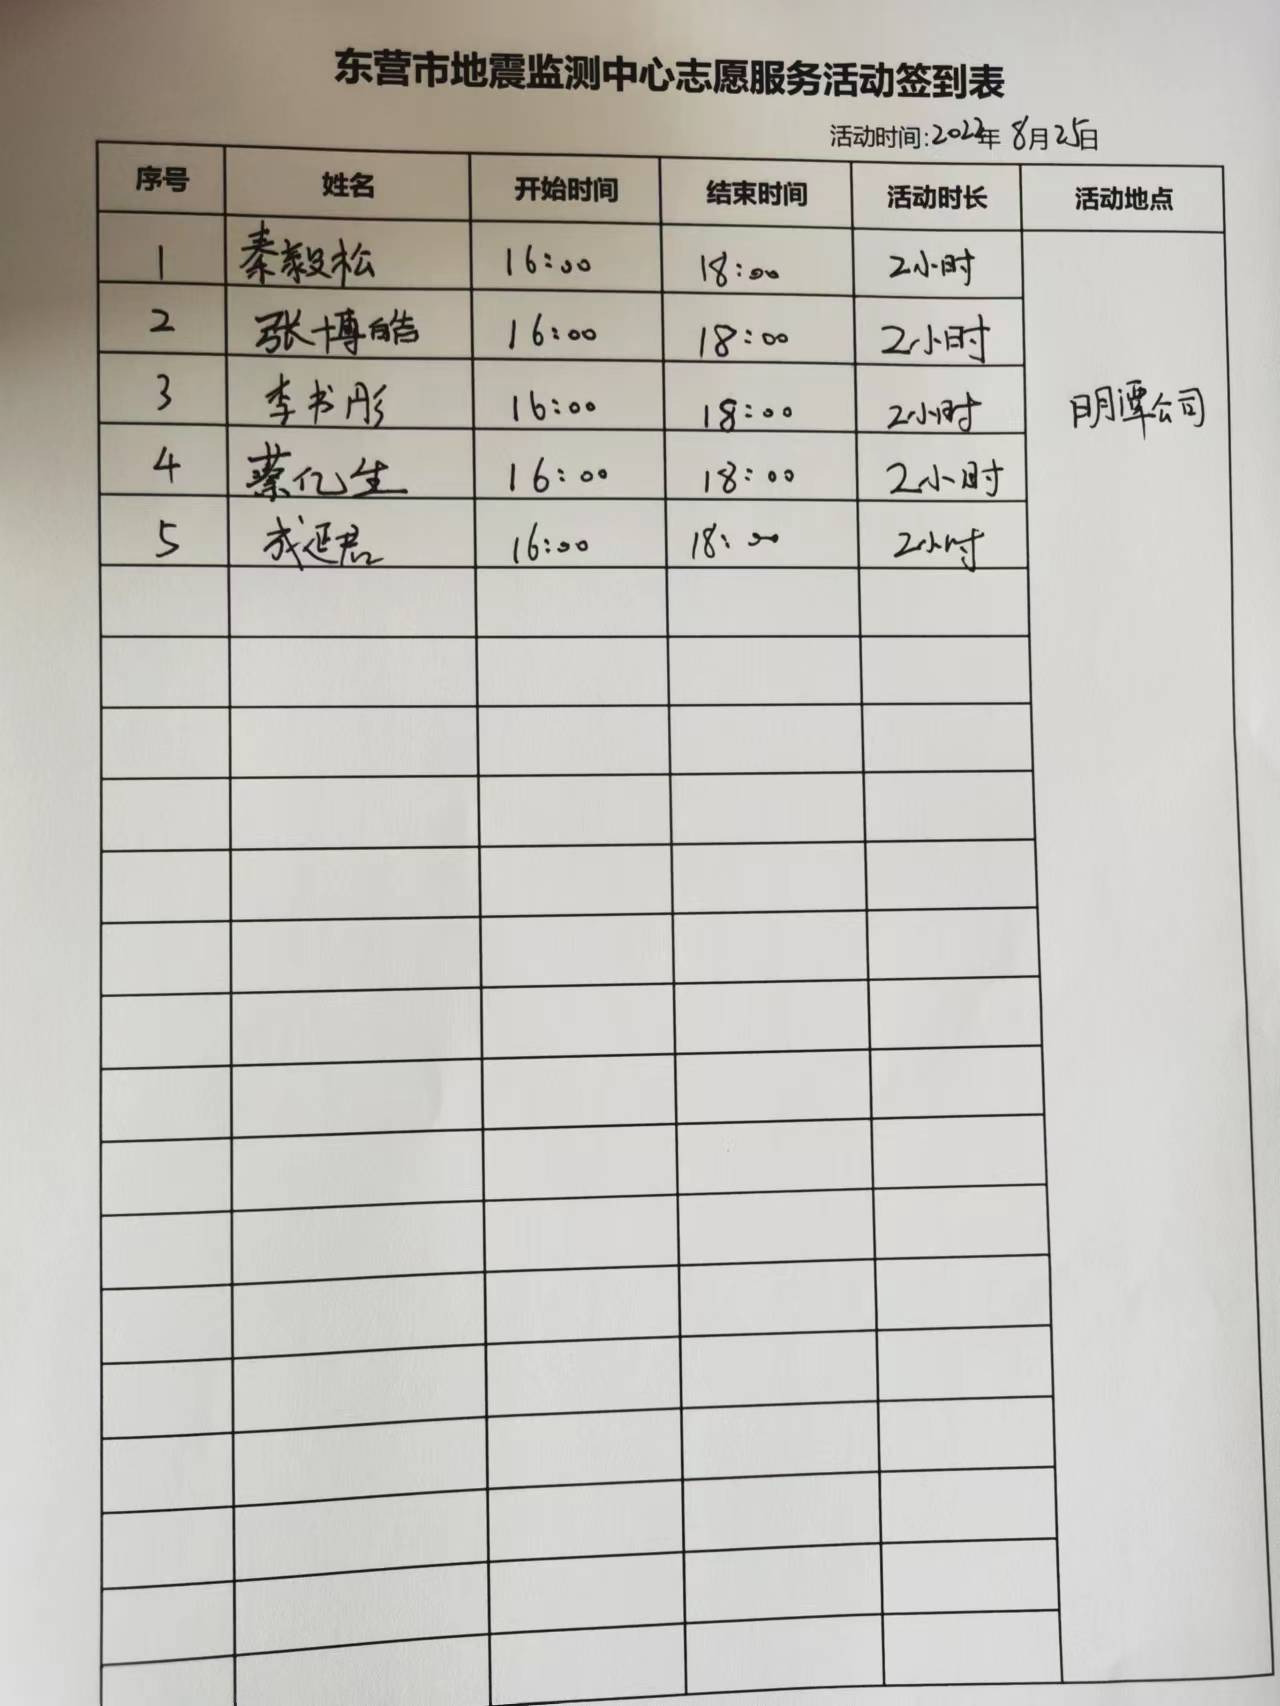 东营市地震监测中心志愿服务活动签到表
活动时间:2022年 8月25日
序号 姓名 开始时间 结束时间 活动时长 活动地点
1 秦毅松 16:00 18:00 2小时
2 张博皓 16:00 18:00 2小时
3 李书彤 16:00 18:00 2小时 明潭公司
4 蔡亿生 16:00 18:00 2小时
5 成延君 16:00 18:00 2小时